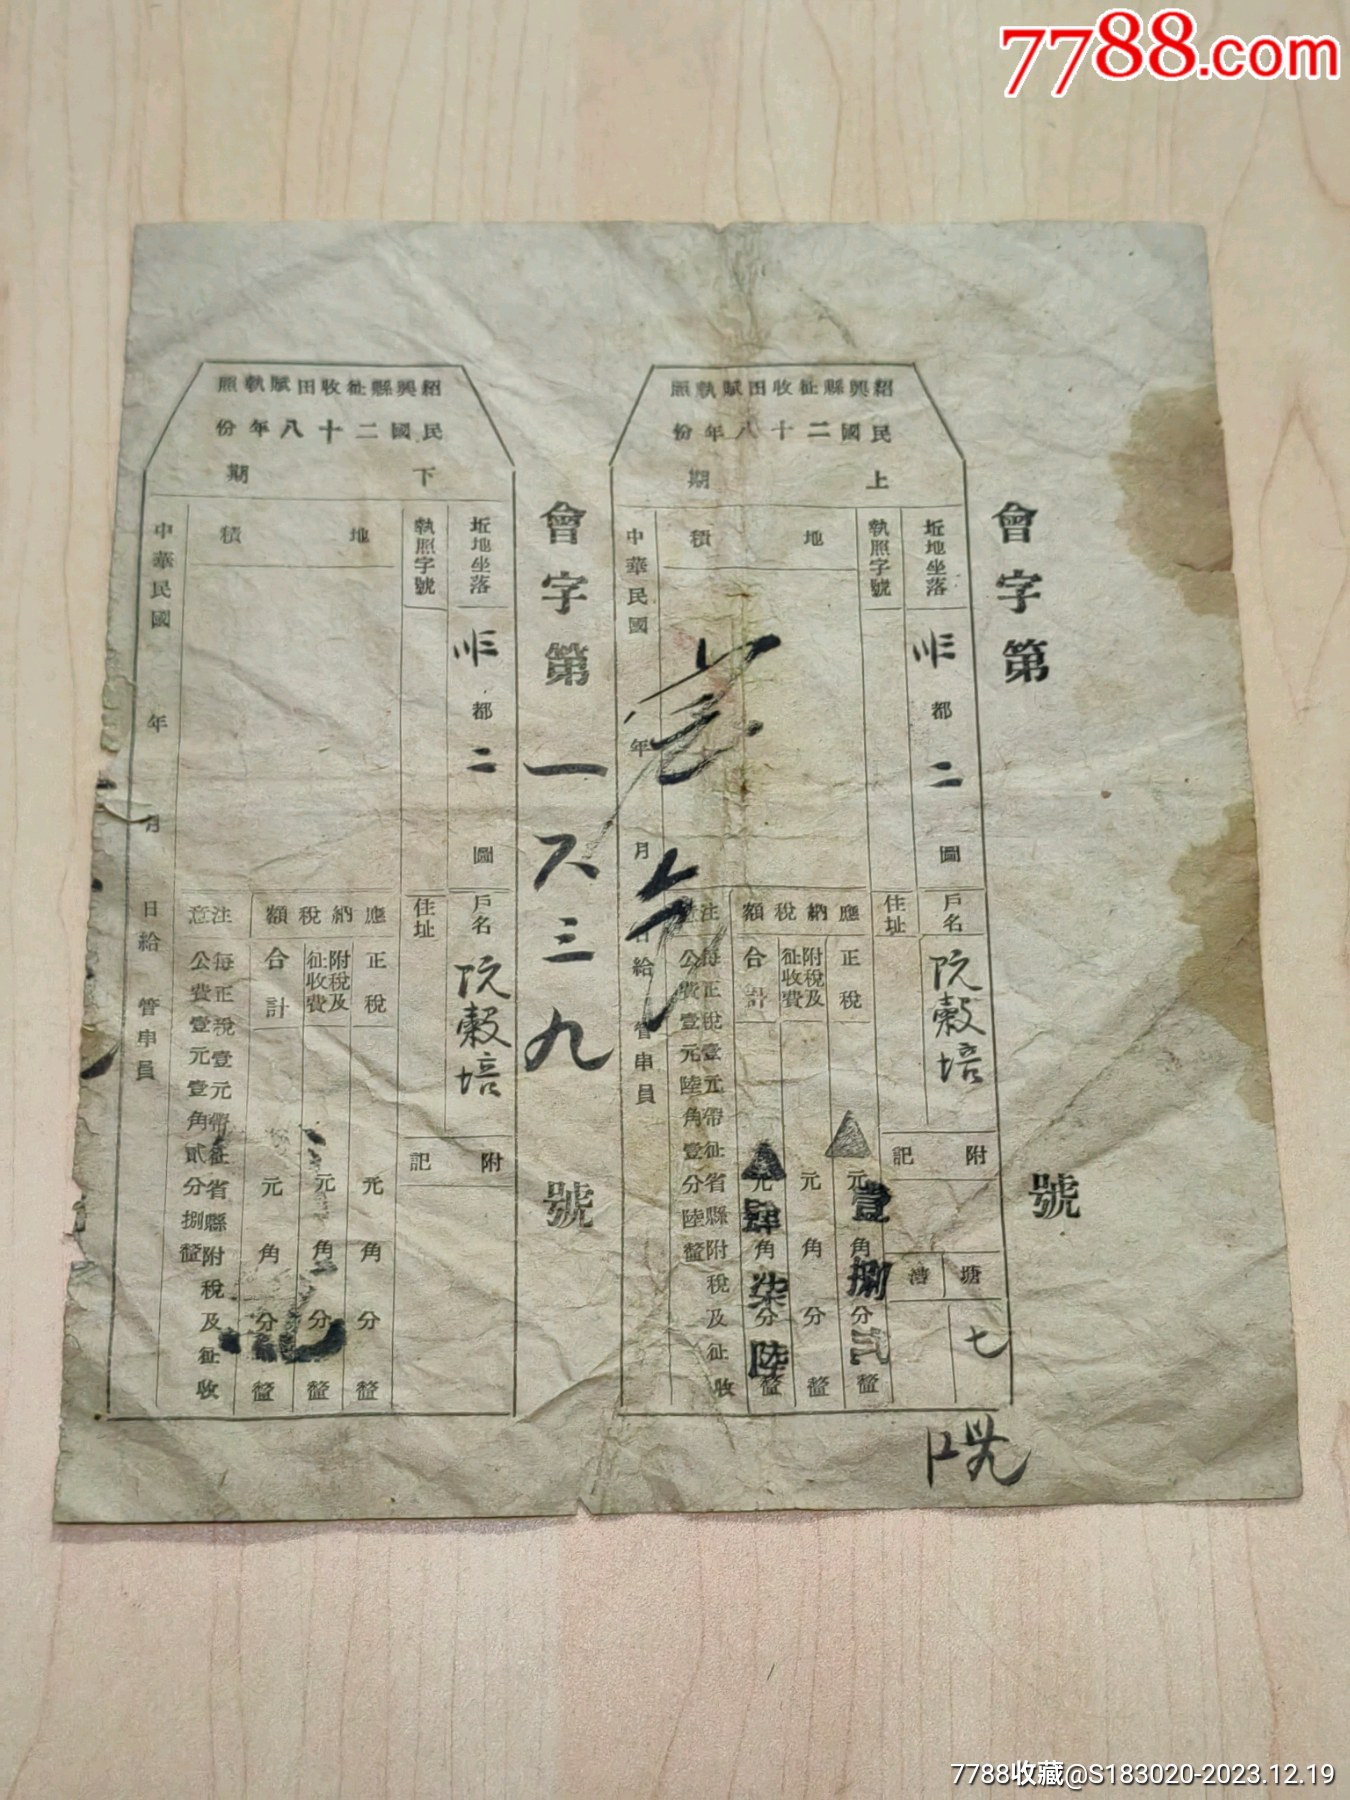 7788.com
會字第
號
紹興縣征收田賦執照
民國二十八年份
上期
坵地坐落
都二圖
戶名
阮穀培
執照字號
住址
附記
塘
七
地積
應納稅額
正稅
元壹角捌分弍釐
附稅及征收費
元角分釐
合計
元肆角柒分陸釐
注意
每正稅壹元帶征省縣附稅及征收
公費壹元陸角壹分陸釐
中華民國年月日給
管串員
會字第一六三九號
紹興縣征收田賦執照
民國二十八年份
下期
坵地坐落
都二圖
戶名
阮穀培
執照字號
住址
附記
地積
應納稅額
正稅
元角分釐
附稅及征收費
元角分釐
合計
元角分釐
注意
每正稅壹元帶征省縣附稅及征收
公費壹元壹角貳分捌釐
中華民國年月日給
管串員
7788收藏@S183020-2023.12.19